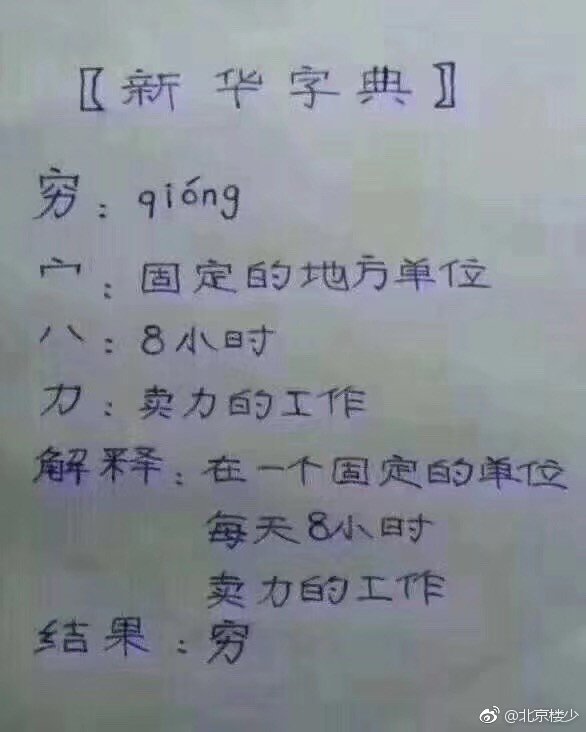 〖新华字典〗
穷：qióng
宀：固定的地方单位
八：8小时
力：卖力的工作
解释：在一个固定的单位
每天8小时
卖力的工作
结果：穷
@北京楼少